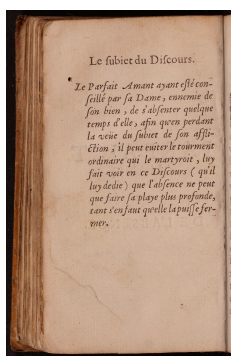 Le subiet du Discours.
Le Parfait Amant ayant esté con-
seillé par sa Dame, ennemie de
son bien, de s'absenter quelque
temps d'elle, afin qu'en perdant
la veüe du subiet de son affli-
ction, il peut euiter le tourment
ordinaire qui le martyroit, luy
fait voir en ce Discours (qu'il
luy dedie) que l'absence ne peut
que faire sa playe plus profonde,
tant s'en faut qu'elle la puisse fer-
mer.